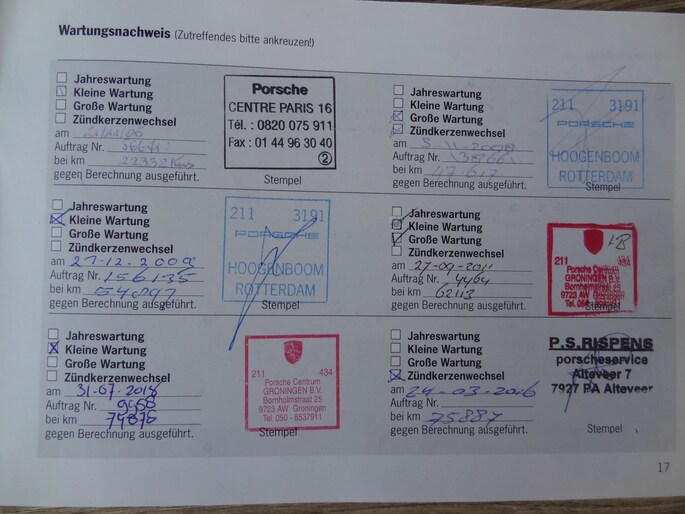 Wartungsnachweis (Zutreffendes bitte ankreuzen!)
Jahreswartung
Kleine Wartung
Große Wartung
Zündkerzenwechsel
am 21/11/06
Auftrag Nr.
bei km 22332 Kms
gegen Berechnung ausgeführt.
Porsche
CENTRE PARIS 16
Tél. : 0820 075 911
Fax : 01 44 96 30 40
2
Stempel
Jahreswartung
Kleine Wartung
Große Wartung
Zündkerzenwechsel
am 5-11-2008
Auftrag Nr.
bei km 47617
gegen Berechnung ausgeführt.
211 3191
PORSCHE
HOOGENBOOM
ROTTERDAM
Stempel
Jahreswartung
Kleine Wartung
Große Wartung
Zündkerzenwechsel
am 27-12-2009
Auftrag Nr. 156135
bei km 54097
gegen Berechnung ausgeführt.
211 3191
PORSCHE
HOOGENBOOM
ROTTERDAM
Stempel
Jahreswartung
Kleine Wartung
Große Wartung
Zündkerzenwechsel
am 27-09-2011
Auftrag Nr. 4464
bei km 62113
gegen Berechnung ausgeführt.
211 434
Porsche Centrum
GRONINGEN B.V.
Bornholmstraat 25
9723 AW Groningen
Stempel
Jahreswartung
Kleine Wartung
Große Wartung
Zündkerzenwechsel
am 31-07-2013
Auftrag Nr. 9458
bei km 74876
gegen Berechnung ausgeführt.
211 434
Porsche Centrum
GRONINGEN B.V.
Bornholmstraat 25
9723 AW Groningen
Tel. 050 - 8537911
Stempel
Jahreswartung
Kleine Wartung
Große Wartung
Zündkerzenwechsel
am 24-03-2016
Auftrag Nr.
bei km 75887
gegen Berechnung ausgeführt.
P.S.RISPENS
porscheservice
Alteveer 7
7927 PA Alteveer
Stempel
17